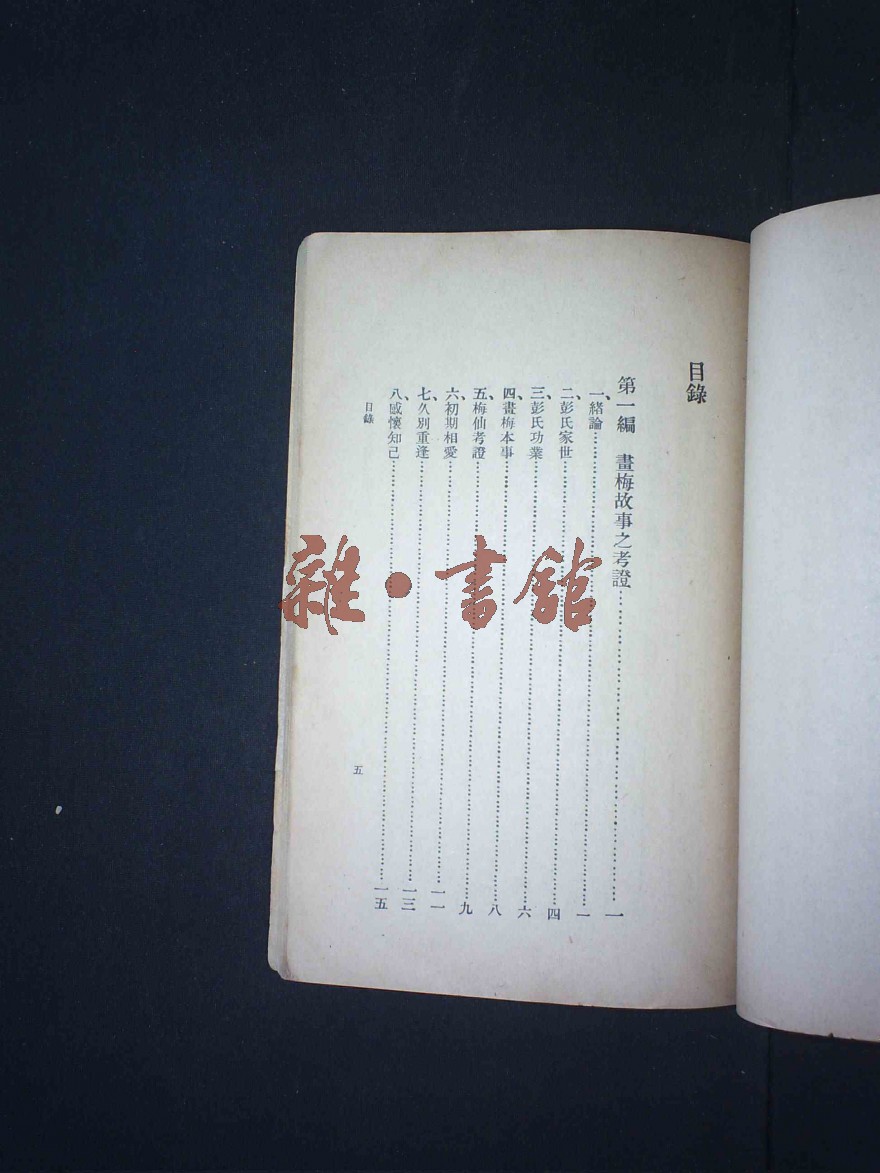 目錄
第一編 畫梅故事之考證……一
一、緒論……一
二、彭氏家世……四
三、彭氏功業……六
四、畫梅本事……八
五、梅仙考證……九
六、初期相愛……一一
七、久別重逢……一三
八、感懷知己……一五
目錄
五
雜·書館